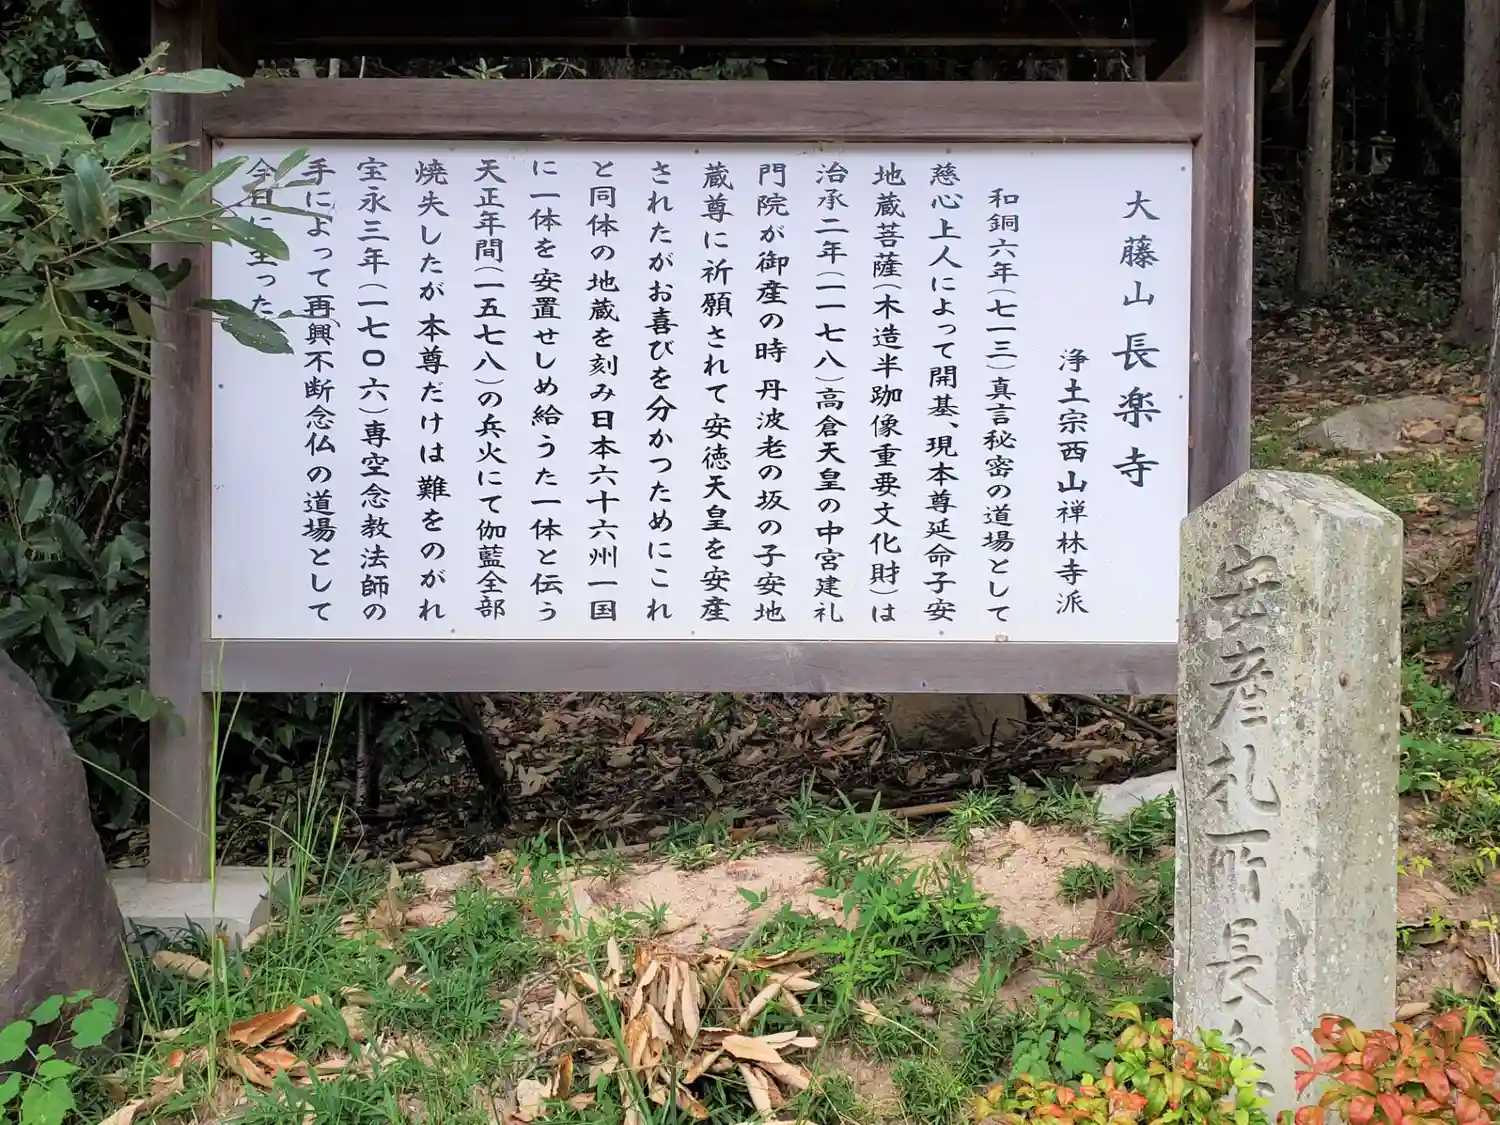 大藤山 長楽寺
浄土宗西山禅林寺派
和銅六年(七一三)真言秘密の道場として
慈心上人によって開基、現本尊延命子安
地蔵菩薩(木造半跏像重要文化財)は
治承二年(一一七八)高倉天皇の中宮建礼
門院が御産の時 丹波老の坂の子安地
蔵尊に祈願されて安徳天皇を安産
されたがお喜びを分かつためにこれ
と同体の地蔵を刻み日本六十六州一国
に一体を安置せしめ給うた一体と伝う
天正年間(一五七八)の兵火にて伽藍全部
焼失したが本尊だけは難をのがれ
宝永三年(一七〇六)専空念教法師の
手によって再興不断念仏の道場として
今日に至った
安産礼所長